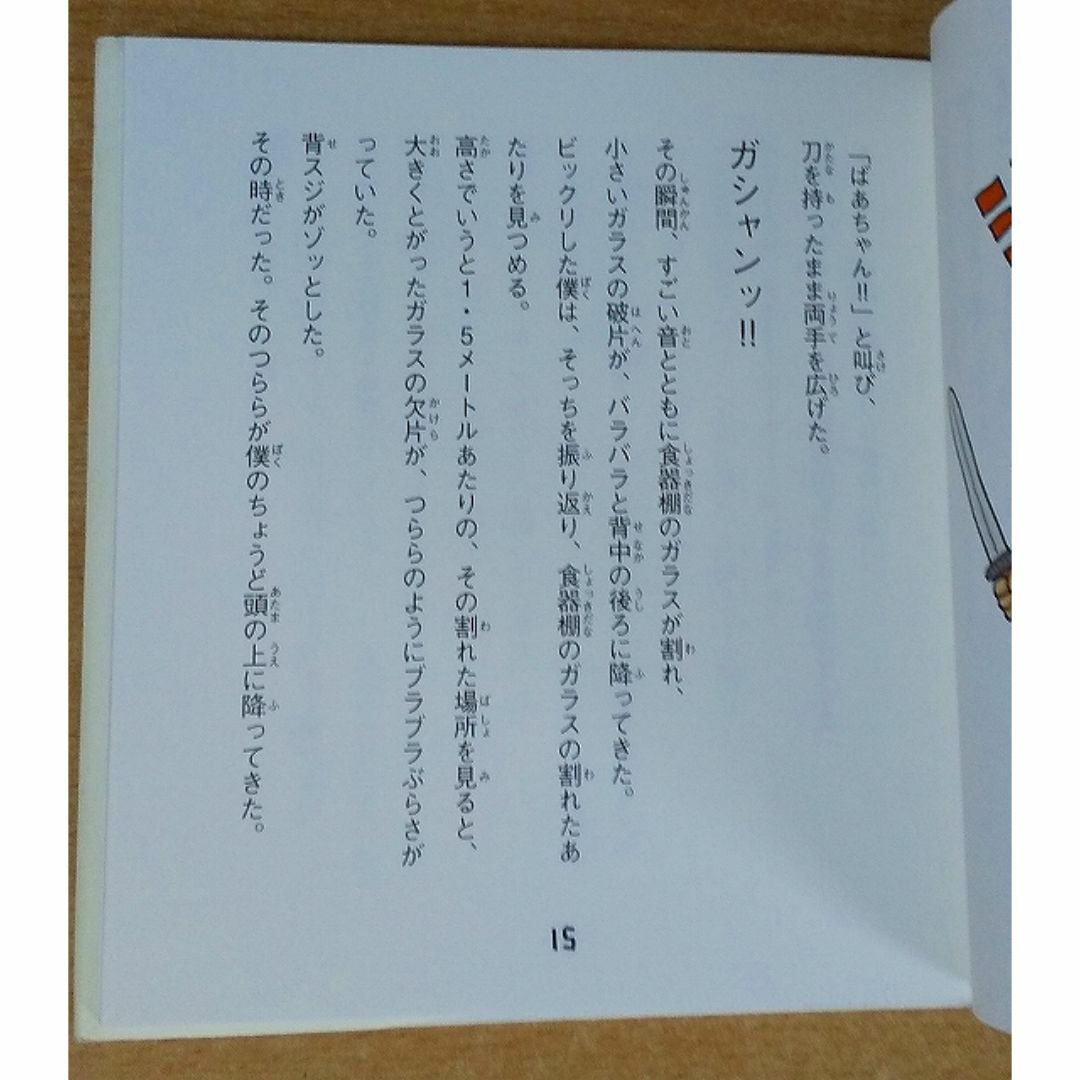 「ばあちゃん!!」と叫び、
刀を持ったまま両手を広げた。
ガシャンッ!!
その瞬間、すごい音とともに食器棚のガラスが割れ、
小さいガラスの破片が、バラバラと背中の後ろに降ってきた。
ビックリした僕は、そっちを振り返り、食器棚のガラスの割れたあ
たりを見つめる。
高さでいうと1・5メートルあたりの、その割れた場所を見ると、
大きくとがったガラスの欠片が、つららのようにブラブラぶらさが
っていた。
背スジがゾッとした。
その時だった。そのつららが僕のちょうど頭の上に降ってきた。
15